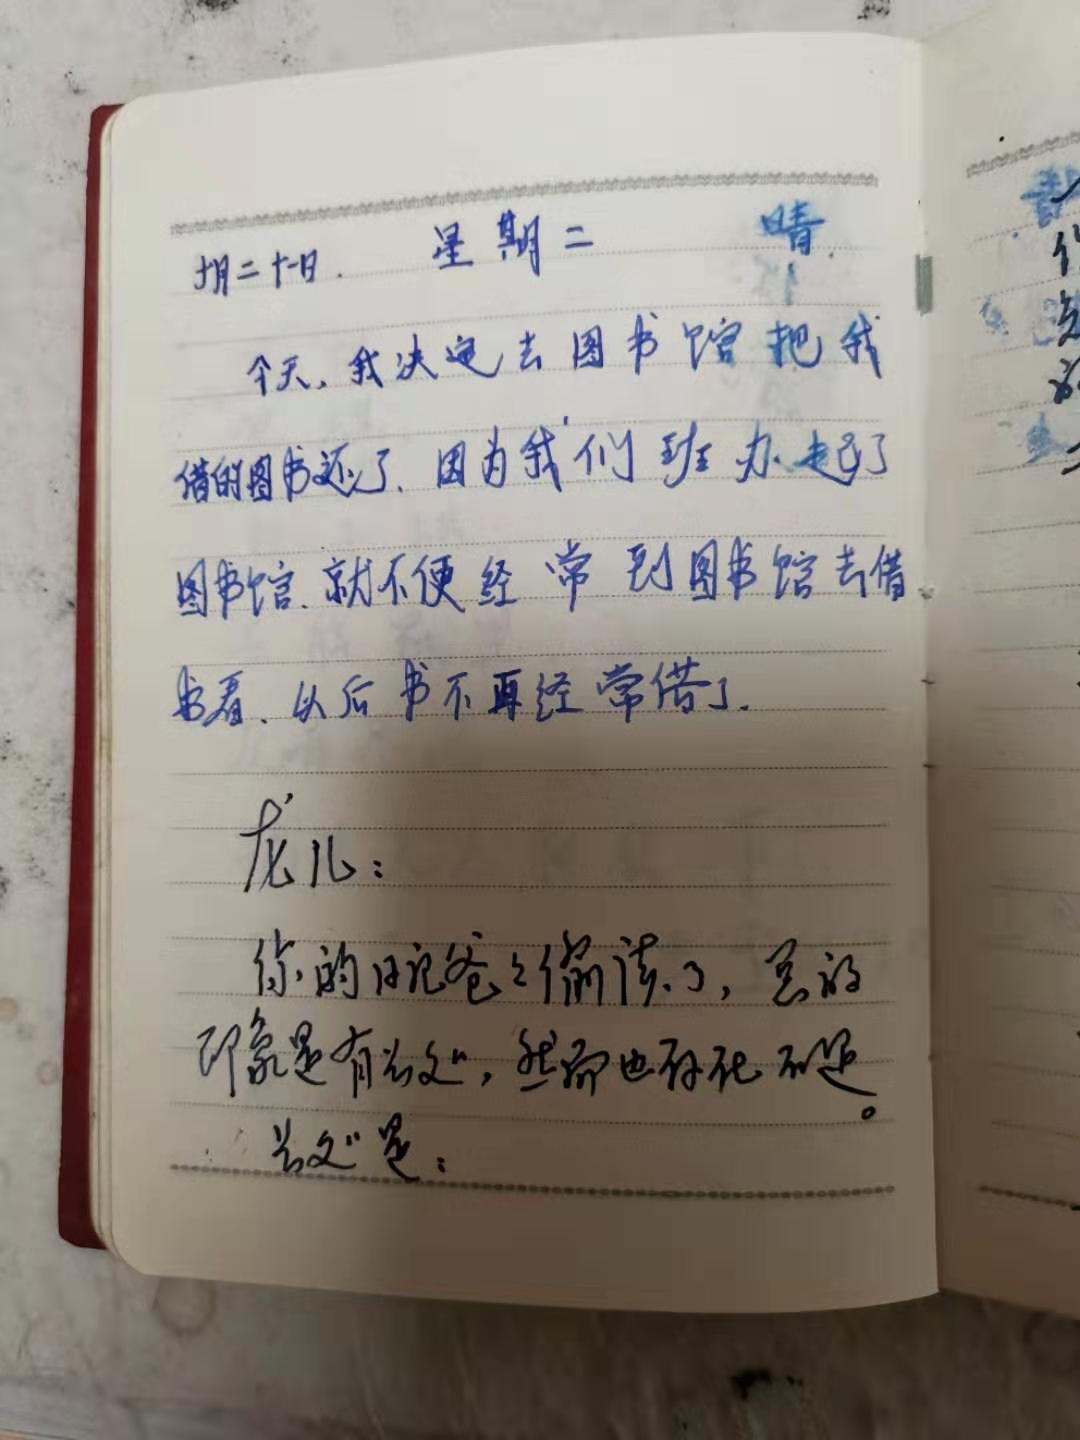 十月二十一日. 星期二 晴.
今天,我决定去图书馆把我
借的图书还了.因为我们班办起了
图书馆.就不便经常到图书馆去借
书看.从后书不再经常借了.
龙儿:
你的日记爸爸偷读了,总的
印象是有长处,然而也存在不足。
长处是: